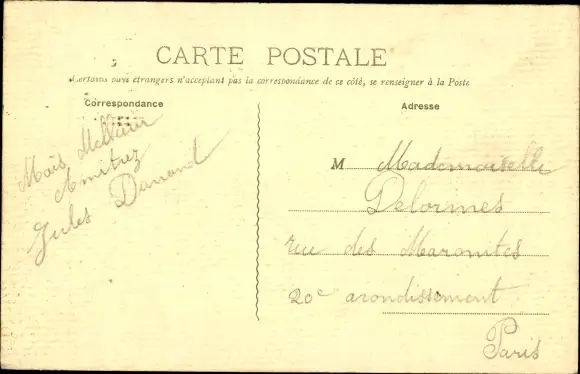 CARTE POSTALE
Certains pays étrangers n'acceptant pas la correspondance de ce côté, se renseigner à la Poste
Correspondance
Adresse
Mais Meilleur
Amitiez
Jules Durand
M Mademoiselle
Delormes
rue des Maronites
20e arondissement
Paris